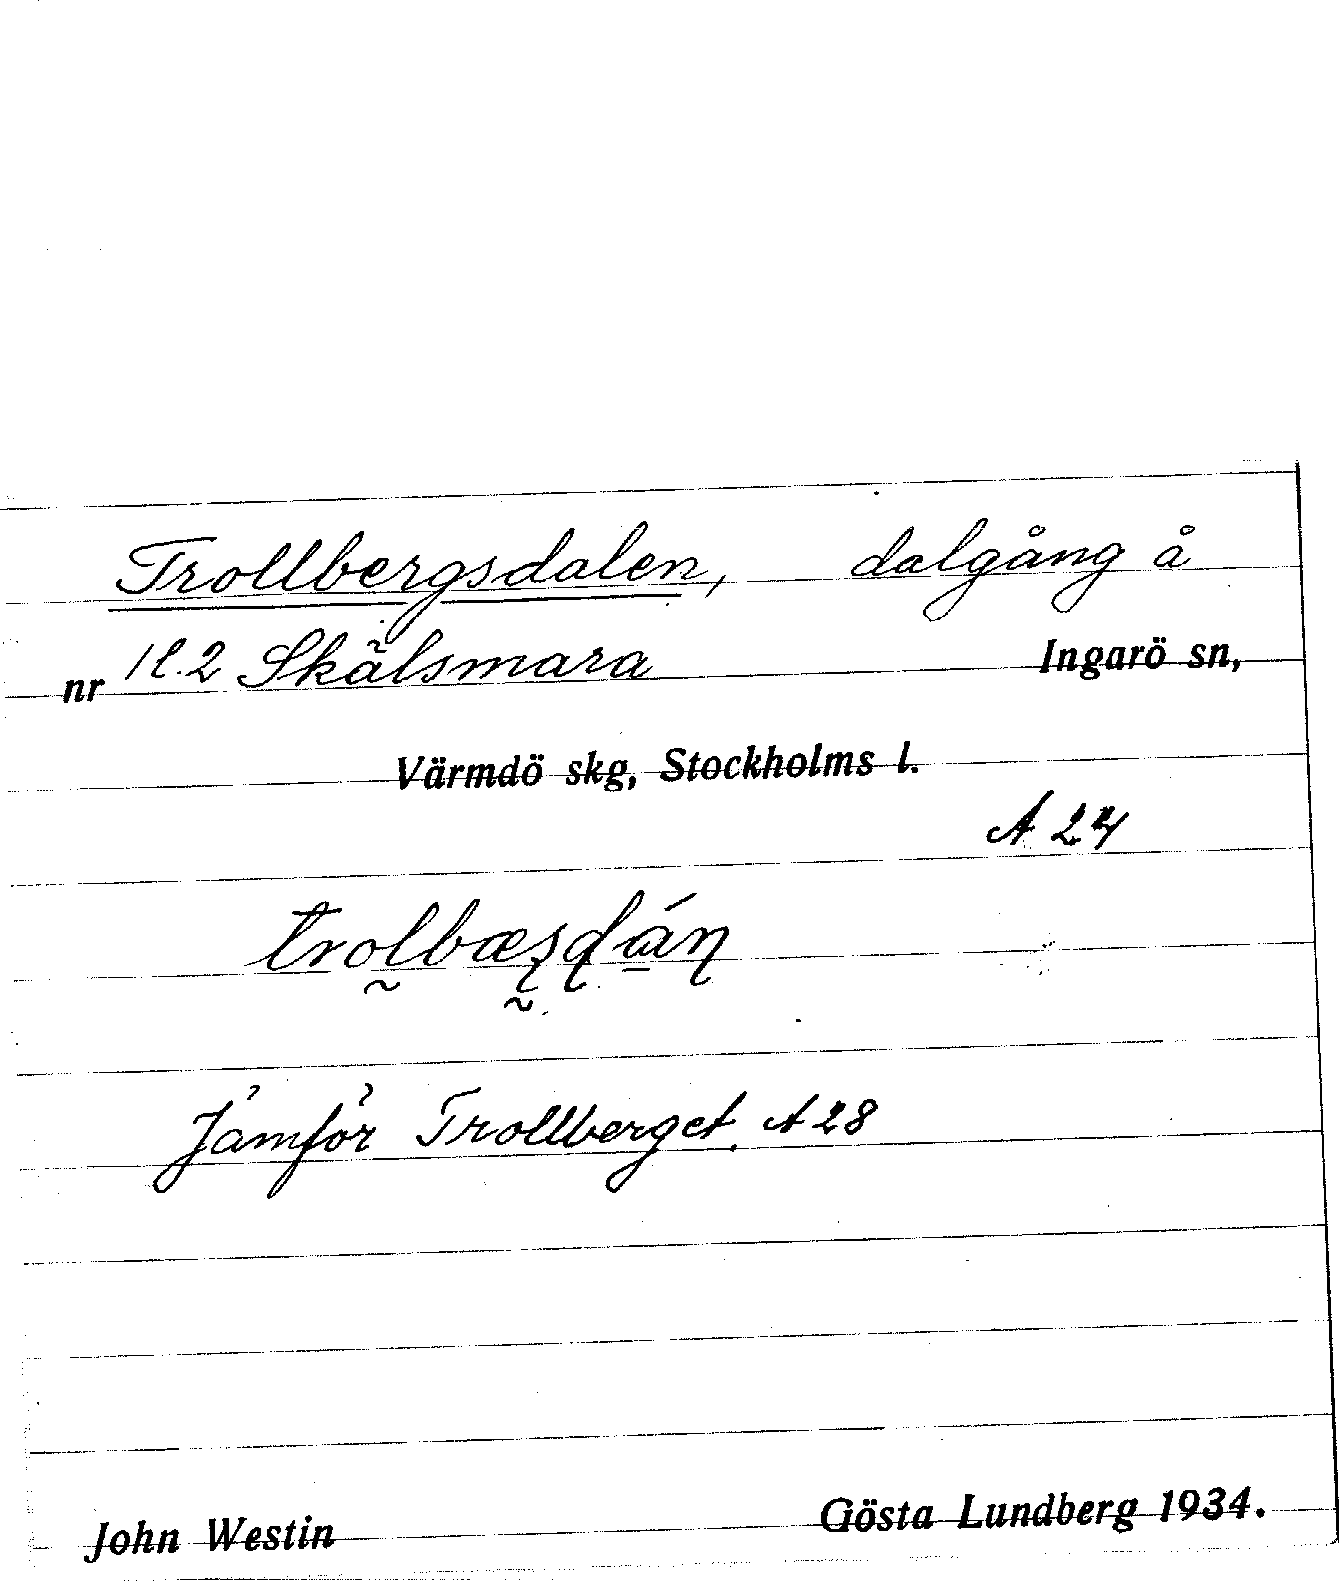 Trollbergsdalen, dalgång å
nr 1l.2 Skälsmara Ingarö sn,
Värmdö skg, Stockholms l.
A 24
Jämför Trollberget. A 28
John Westin Gösta Lundberg 1934.